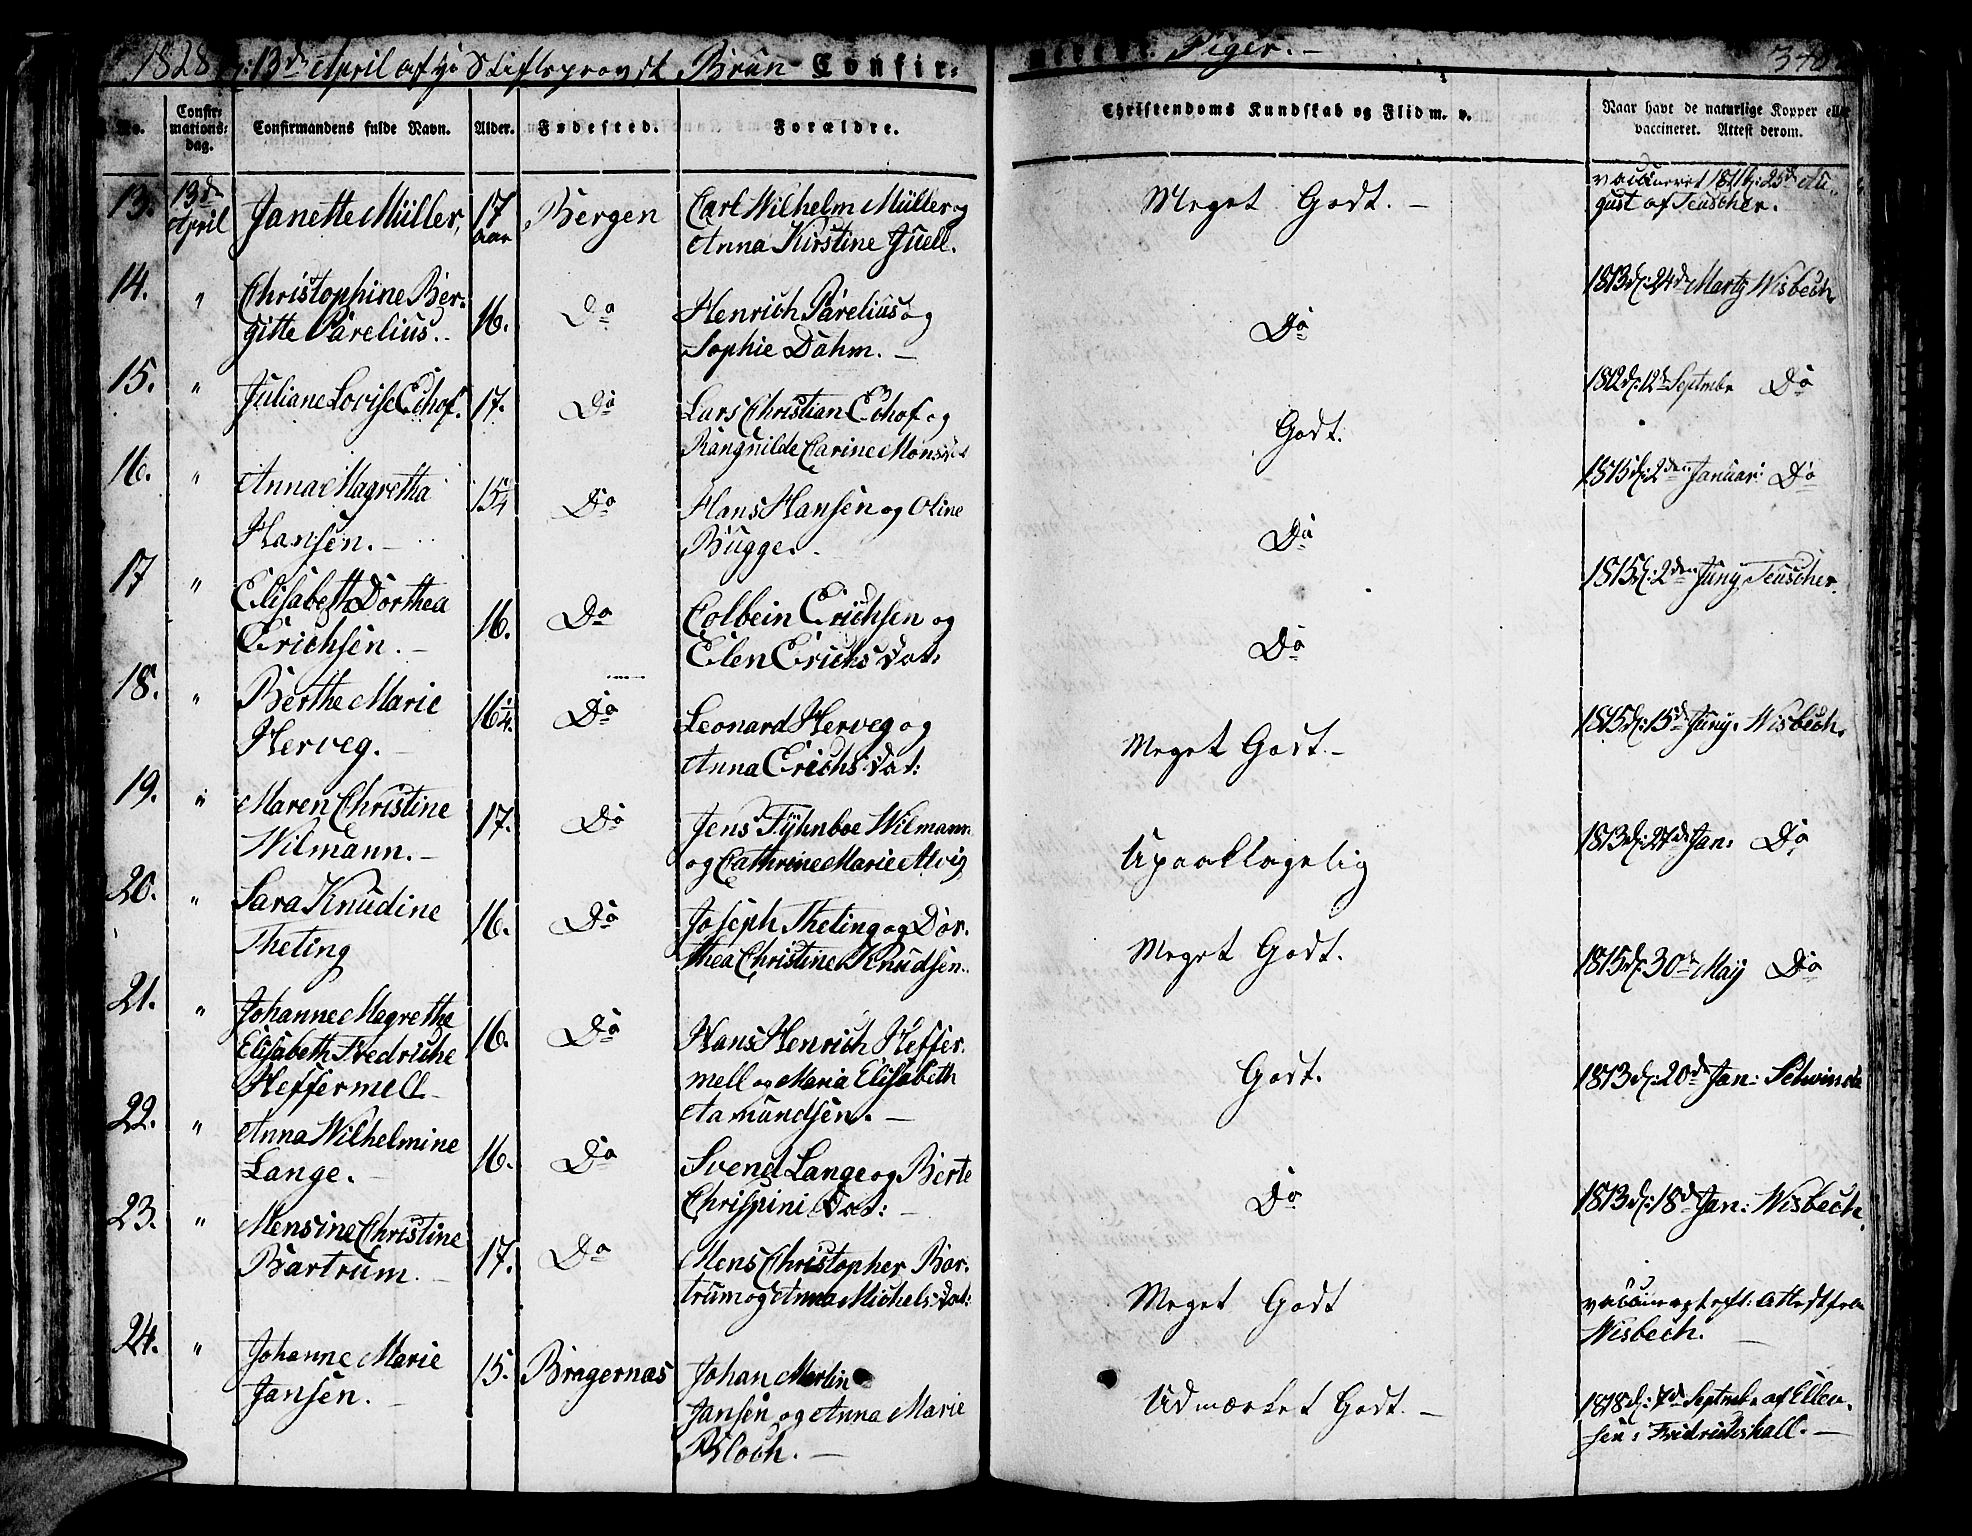 1828 d: 13de April af Hr Stiftsprovst Brun Confir-
merede Piger. –
340
No.
Confir-
mations-
dag.
Confirmandens fulde Navn.
Alder.
Fødested.
Forældre.
Christendoms Kundskab og Flid m. v.
Naar havt de naturlige Kopper eller
vaccineret. Attest derom.
13.
13de
April
Janette Müller,
17
aar
Bergen
Carl Wilhelm Müller og
Anna Kirstine Juell.
Meget Godt. –
vaccineret d: 25de Au-
gust af Teuscher.
14.
"
Christophine Ber-
gitte Parelius.
16.
Do
Henrich Parelius og
Sophie Dahm. –
Do
1813 d: 24de Marty Wisbech
15.
"
Juliane Lovise Echof.
17.
Do
Lars Christian Echof og
Rangnilde Carine
Godt.
1812 d: 12te Septmbr Do
16.
"
Anna Magretha
Hansen. –
15 1/4
Do
Hans Hansen og Oline
Bugge.
Do
1815 d: 2den Januar: Do
17
"
Elisabeth Dorthea
Erichsen. –
16.
Do
Colbein Erichsen og
Elen Erichs Dat:
Do
1815 d: 2den Juny Teuscher.
18.
"
Berthe Marie
Herveg. –
16 1/4.
Do
Leonard Herveg og
Anna Erichs Dat:
Meget Godt. –
1815 d: 15de Juny. Wisbech.
19.
"
Maren Christine
Wilmann. –
17.
Do
Jens Fyhnboe Wilmann
og Cathrine Marie Alvig
Upaaklagelig
1813 d: 27de Jan: Do
20.
"
Sara Knudine
Theting
16.
Do
Joseph Theting og Dor-
thea Christine Knudsen.
Meget Godt.
1815 d: 30te May Do
21.
"
Johanne Magrethe
Elisabeth Fredriche
Heffermell
16.
Do
Hans Henrich Heffer-
mell og Maria Elisabeth
Aamundsen. –
Godt.
1813 d: 20de Jan:
22.
"
Anna Wilhelmine
Lange. –
16.
Do
Svend Lange og Berte
Chrispini Dat: –
Do
1813 d: 18de Jan: Wisbech.
23.
"
Mensine Christine
Bartrum. –
17.
Do
Mens Christopher Bar-
trum og Anna Michels Dat:
Meget Godt
vaccineret eft: Attest fra
Wisbech. –
24.
"
Johanne Marie
Jansen. –
15.
Bragernæs
Johan Martin
Jansen og Anna Marie
Bloch. –
Udmærket Godt. –
1818 d: 7de Septmbr af Ellen-
sen: Fridrichshall. –